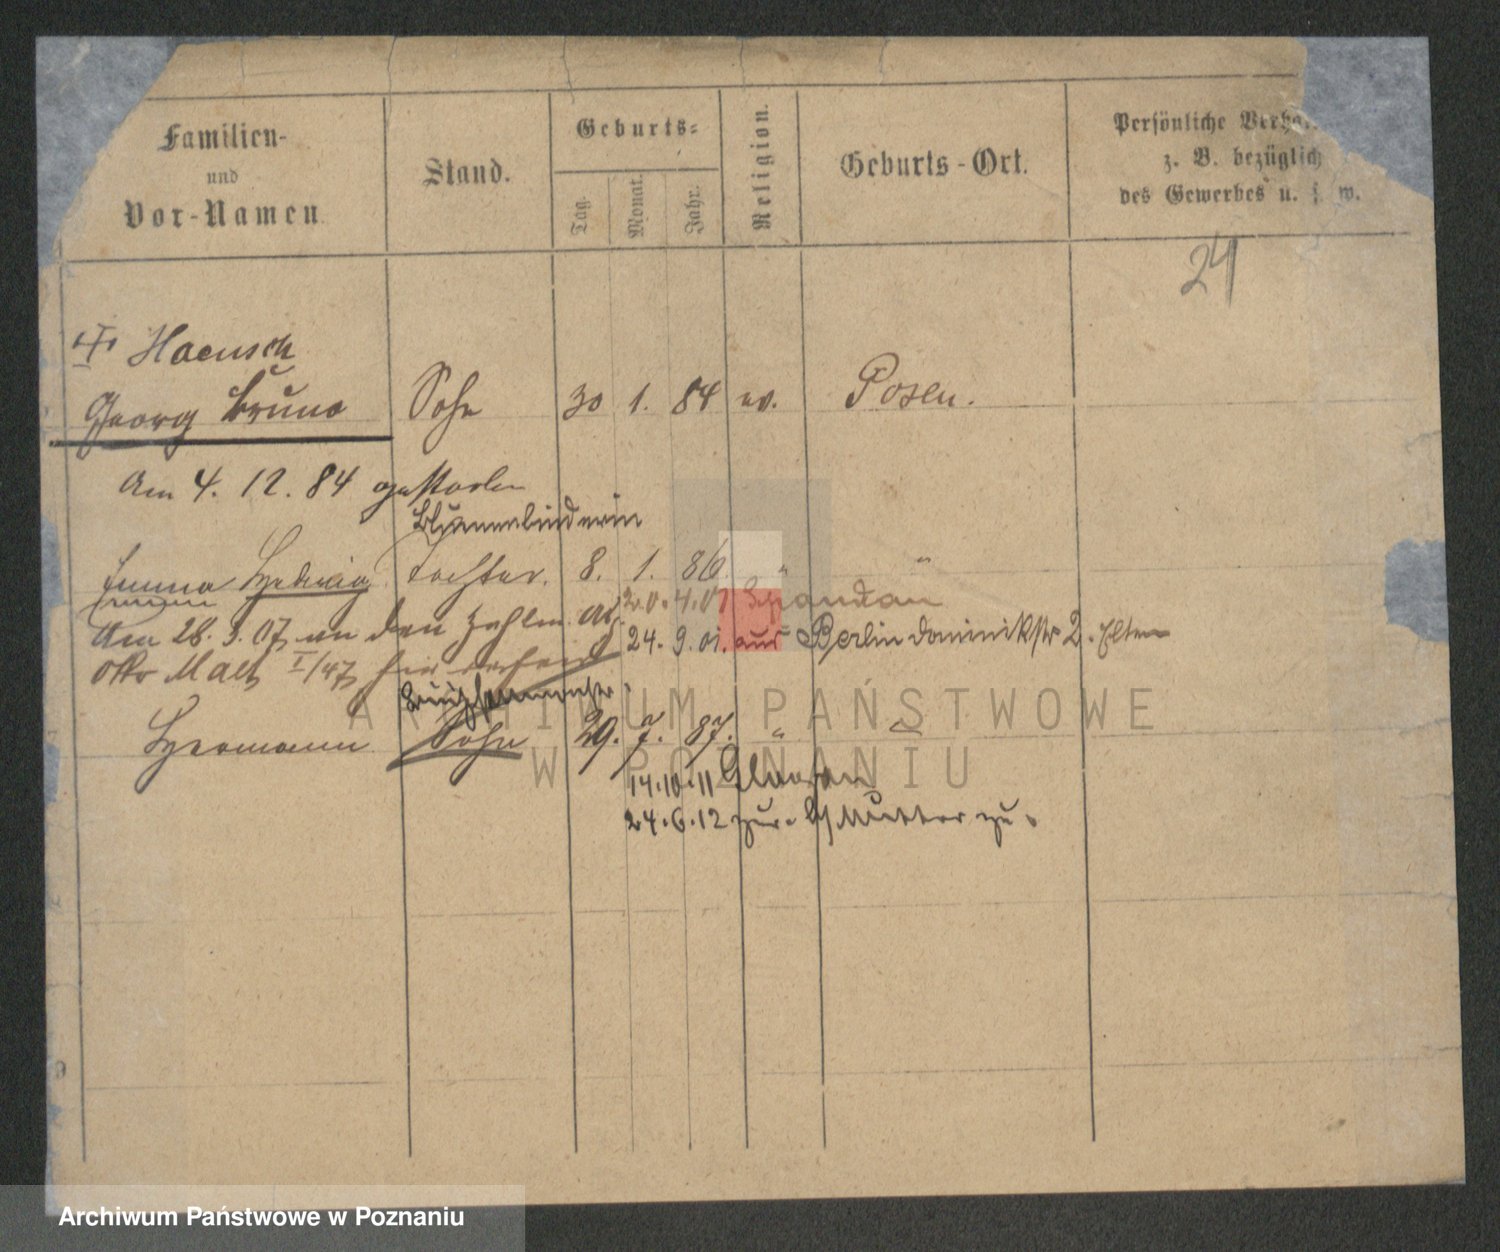 Familien-
und
Vor-Namen
Stand.
Geburts-
Tag.
Monat.
Jahr.
Religion.
Geburts-Ort.
Persönliche
z. B. bezüglich
des Gewerbes u. s. w.
24
Haensch
Georg Bruno Sohn 30 1. 84 ev. Posen.
Am 4. 12. 84 gestorben
Blumenbinderin
Emma Hedwig Tochter. 8. 1. 86. " "
20.4.01 Spandau
Am 28. 3. 07 an den Zahlm.
24. 9. 01. aus Berlin Dominikstr 2. Eltern
Otto
Hermann Sohn 29. 7. 87. "
14.10.11
24.6.12 zur Mutter zu.
ARCHIWUM PAŃSTWOWE
W POZNANIU
Archiwum Państwowe w Poznaniu